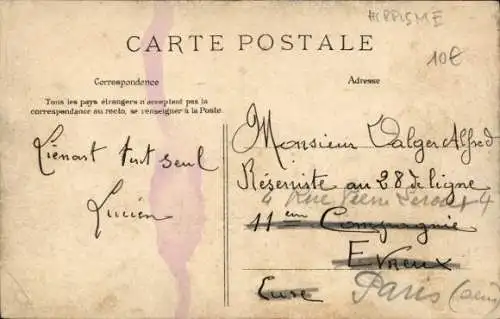 HIPPISME
10€
CARTE POSTALE
Correspondance
Tous les pays étrangers n'acceptant pas la
correspondance au recto, se renseigner à la Poste.
Liénart tut seul
Lucien
Adresse
Monsieur Valger Alfred
Réserviste au 28 de ligne
4 Rue Pierre 4
11eme Compagnie
Evreux
Eure
Paris